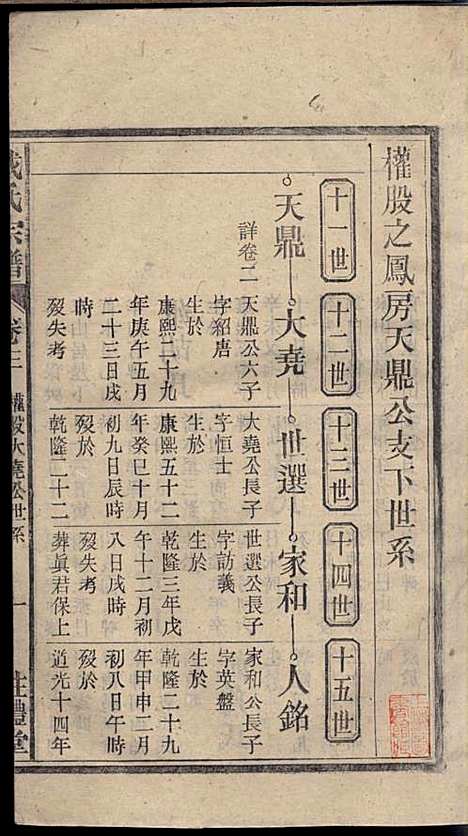 權股之鳳房天鼎公支下世系
十一世 十二世 十三世 十四世 十五世
天鼎 大堯 世選 家和 人銘
詳卷二
天鼎公六子
字紹唐
生於
康熙二十九
年庚午五月
二十三日戌
時
歿失考
大堯公長子
字恒士
生於
康熙五十二
年癸巳十月
初九日辰時
歿於
乾隆二十二
世選公長子
字訪義
生於
乾隆三年戊
午十二月初
八日戌時
歿失考
葬眞君保上
家和公長子
字英盤
生於
乾隆二十九
年甲申二月
初八日午時
歿於
道光十四年
氏宗譜
卷三
權股大堯公世系
一
禮堂